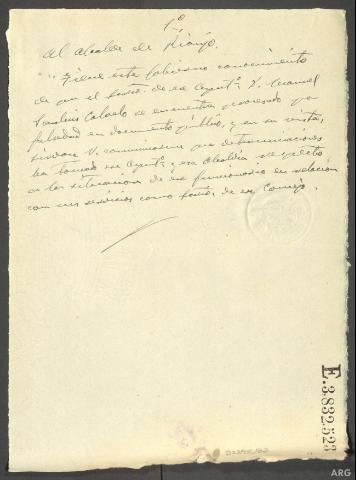 1º
Al alcalde de Rianjo.
Tiene este Gobierno conocimiento
de que el Secretº. de ese Ayuntº. D. Manuel
se encuentra procesado por
falsedad en documento público, y en su vista,
sírvase V. comunicarme que determinaciones
ha tomado ese Ayuntº. y esa Alcaldía respecto
a la situación de ese funcionario en relación
con sus servicios como Secretº. de ese Concejo.
E.3.832.523
ARG